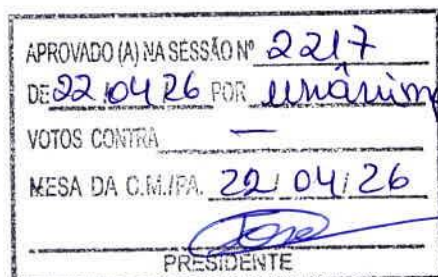 APROVADO (A) NA SESSÃO Nº 2217
DE 22/04/26 POR unânim
VOTOS CONTRA —
MESA DA C.M./PA. 22/04/26
PRESIDENTE